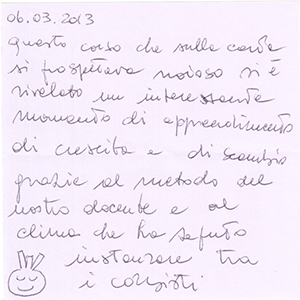 06.03.2013
questo corso che sulla carta
si prospettava noioso si è
rivelato un interessante
momento di apprendimento
di crescita e di scambio
grazie al metodo del
nostro docente e al
clima che ha saputo
instaurare tra
i corsisti